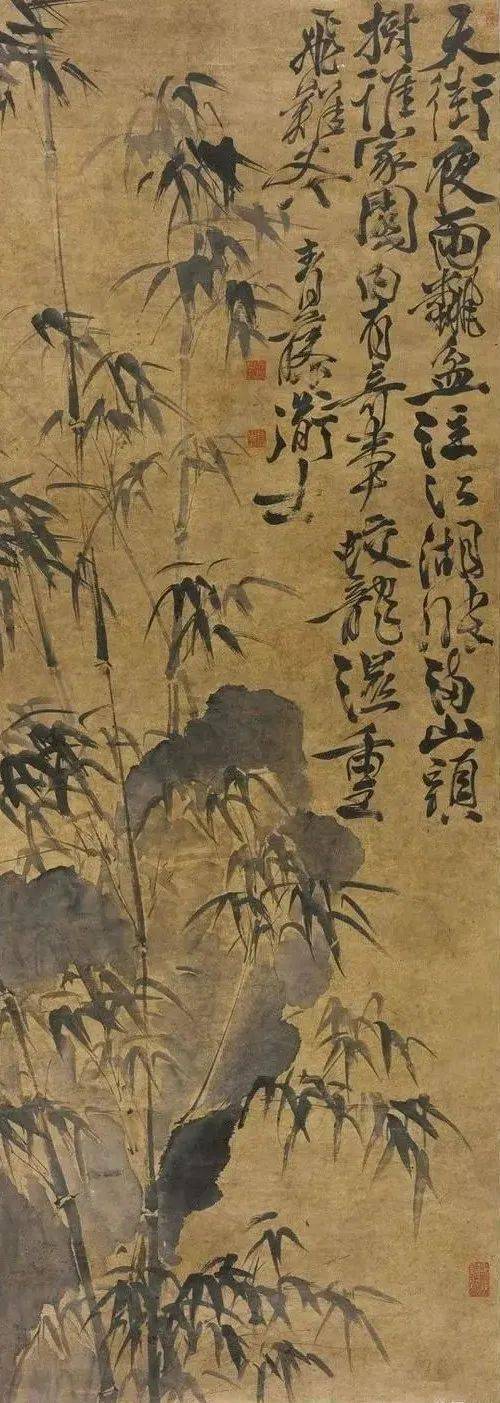 天街夜雨翻盆注江湖漲滿山頭
樹誰家園内有奇事蛟龍濕重
飛難去
青藤道士